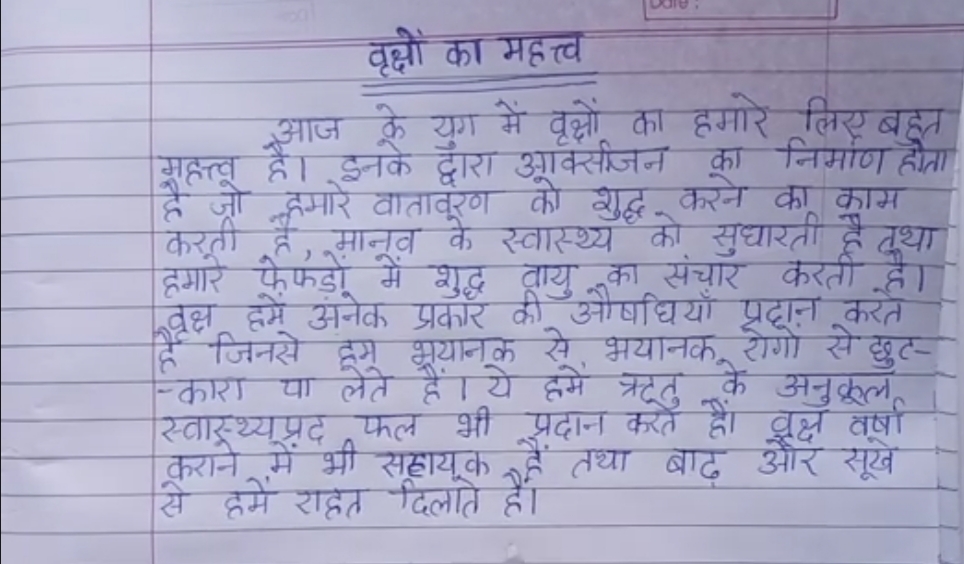 Date:
वृक्षों का महत्त्व
आज के युग में वृक्षों का हमारे लिए बहुत
महत्त्व है। इनके द्वारा आक्सीजन का निर्माण होता
है जो हमारे वातावरण को शुद्ध करने का काम
करती है, मानव के स्वास्थ्य को सुधारती है तथा
हमारे फेफड़ों में शुद्ध वायु का संचार करती है।
वृक्ष हमें अनेक प्रकार की औषधियाँ प्रदान करते
है जिनसे हम भयानक से भयानक रोगों से छुट-
-कारा पा लेते हैं। ये हमें ऋतु के अनुकूल
स्वास्थ्यप्रद फल भी प्रदान करते हैं। वृक्ष वर्षा
कराने में भी सहायक हैं तथा बाढ़ और सूखे
से हमें राहत दिलाते है।